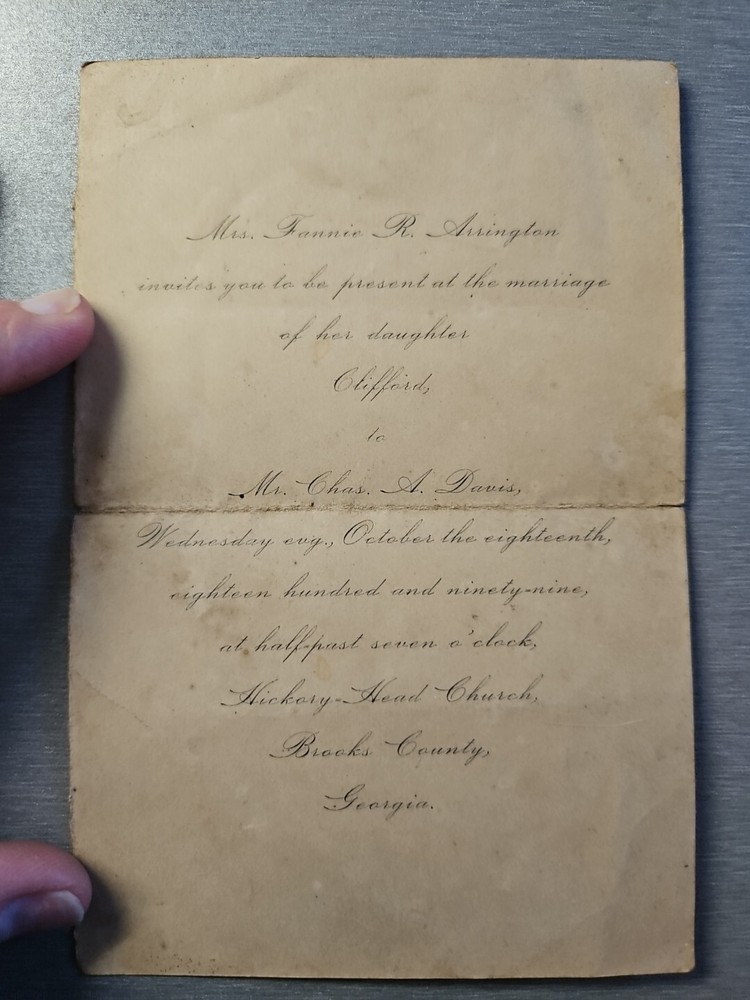 Mrs. Fannie R. Arrington
invites you to be present at the marriage
of her daughter
Clifford,
to
Mr. Chas. A. Davis,
Wednesday evg., October the eighteenth,
eighteen hundred and ninety-nine,
at half-past seven o'clock,
Hickory-Head Church,
Brooks County,
Georgia.